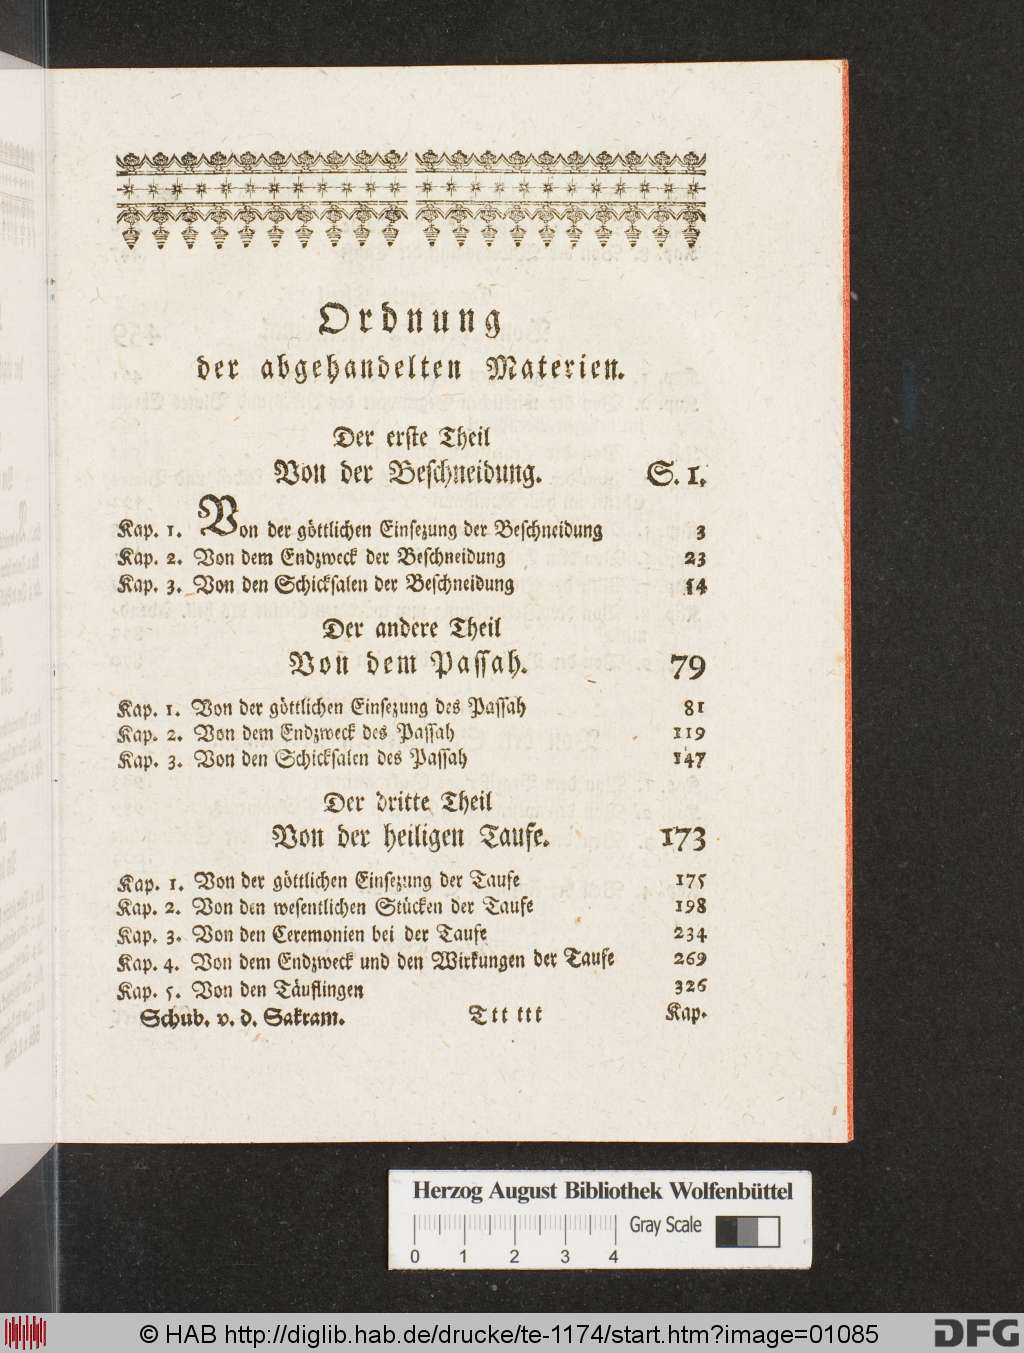 Ordnung
der abgehandelten Materien.
Der erste Theil
Von der Beschneidung. S. 1.
Kap. 1. Von der göttlichen Einsezung der Beschneidung 3
Kap. 2. Von dem Endzweck der Beschneidung 23
Kap. 3. Von den Schicksalen der Beschneidung 54
Der andere Theil
Von dem Passah. 79
Kap. 1. Von der göttlichen Einsezung des Passah 81
Kap. 2. Von dem Endzweck des Passah 119
Kap. 3. Von den Schicksalen des Passah 147
Der dritte Theil
Von der heiligen Taufe. 173
Kap. 1. Von der göttlichen Einsezung der Taufe 175
Kap. 2. Von den wesentlichen Stücken der Taufe 198
Kap. 3. Von den Ceremonien bei der Taufe 234
Kap. 4. Von dem Endzweck und den Wirkungen der Taufe 269
Kap. 5. Von den Täuflingen 326
Schub. v. d. Sakram. Ttt ttt Kap.
Herzog August Bibliothek Wolfenbüttel
Gray Scale
0 1 2 3 4
© HAB http://diglib.hab.de/drucke/te-1174/start.htm?image=01085
DFG